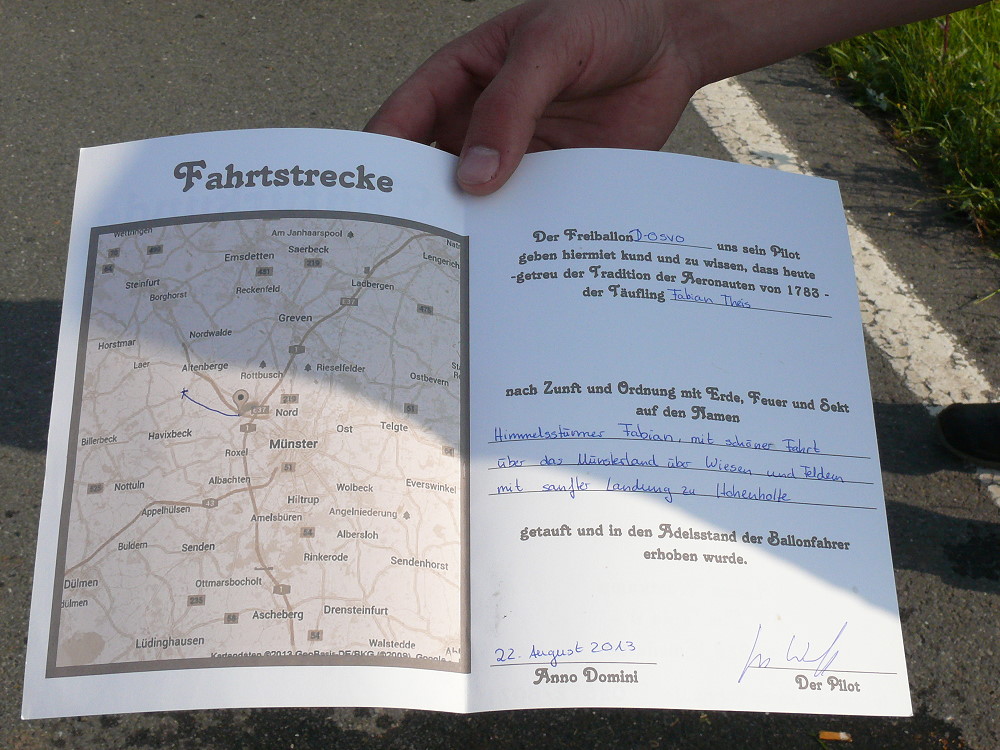 Fahrtstrecke
Wettringen
Am Janhaarspool
Saerbeck
Emsdetten
219
Lengerich
481
Steinfurt
Reckenfeld
Ladbergen
Borghorst
E37
475
Greven
Nordwalde
1
Horstmar
Laer
Altenberge
Rieselfelder
Rottbusch
Ostbevern
219
51
E37
Nord
1
Ost
Telgte
Billerbeck
Havixbeck
Münster
64
Roxel
51
Albachten
Wolbeck
Everswinkel
525
Nottuln
43
Hiltrup
Appelhülsen
Angelniederung
Amelsbüren
54
Albersloh
Buldern
Senden
Rinkerode
Sendenhorst
Dülmen
Ottmarsbocholt
1
dülmen
235
58
Ascheberg
Drensteinfurt
54
Lüdinghausen
Walstedde
Kartendaten ©2013 GeoBasis-DE/BKG (©2009), Google
Der Freiballon D-OSVO uns sein Pilot
geben hiermiet kund und zu wissen, dass heute
-getreu der Tradition der Aeronauten von 1783 -
der Täufling Fabian Theis
nach Zunft und Ordnung mit Erde, Feuer und Sekt
auf den Namen
Himmelsstürmer Fabian, mit schöner Fahrt
über das Münsterland über Wiesen und Feldern
mit sanfter Landung zu Hohenholte
getauft und in den Adelsstand der Ballonfahrer
erhoben wurde.
22. August 2013
Anno Domini
Der Pilot